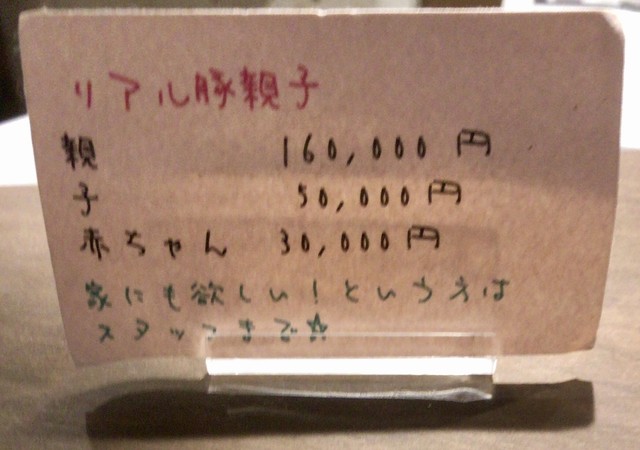 リアル豚親子
親 160,000円
子 50,000円
赤ちゃん 30,000円
家にも欲しい！という方は
スタッフまで☆